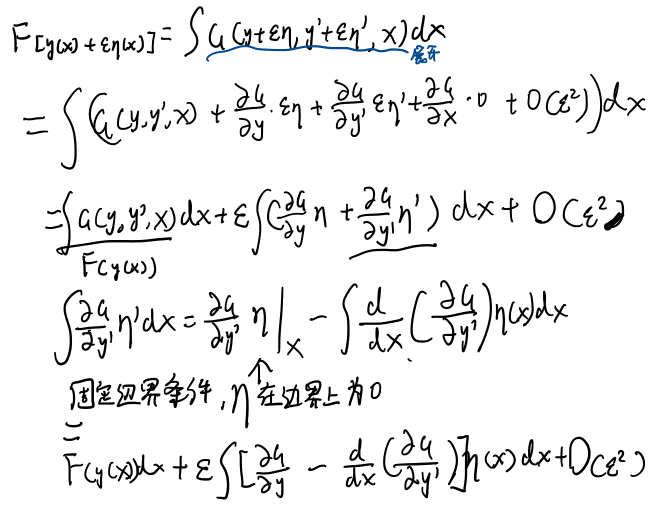 F[y(x)+εη(x)] = ∫G(y+εη, y'+εη', x)dx
展开
= ∫(G(y,y',x) + ∂G/∂y·εη + ∂G/∂y' εη' + ∂G/∂x·0 + O(ε²))dx
= ∫G(y,y',x)dx + ε∫(∂G/∂y η + ∂G/∂y' η')dx + O(ε²)
F(y(x))
∫∂G/∂y' η'dx = ∂G/∂y' η|ₓ - ∫d/dx(∂G/∂y')η(x)dx
↑
固定边界条件,η在边界上为0
=
F(y(x))dx + ε∫[∂G/∂y - d/dx(∂G/∂y')]η(x)dx+O(ε²)